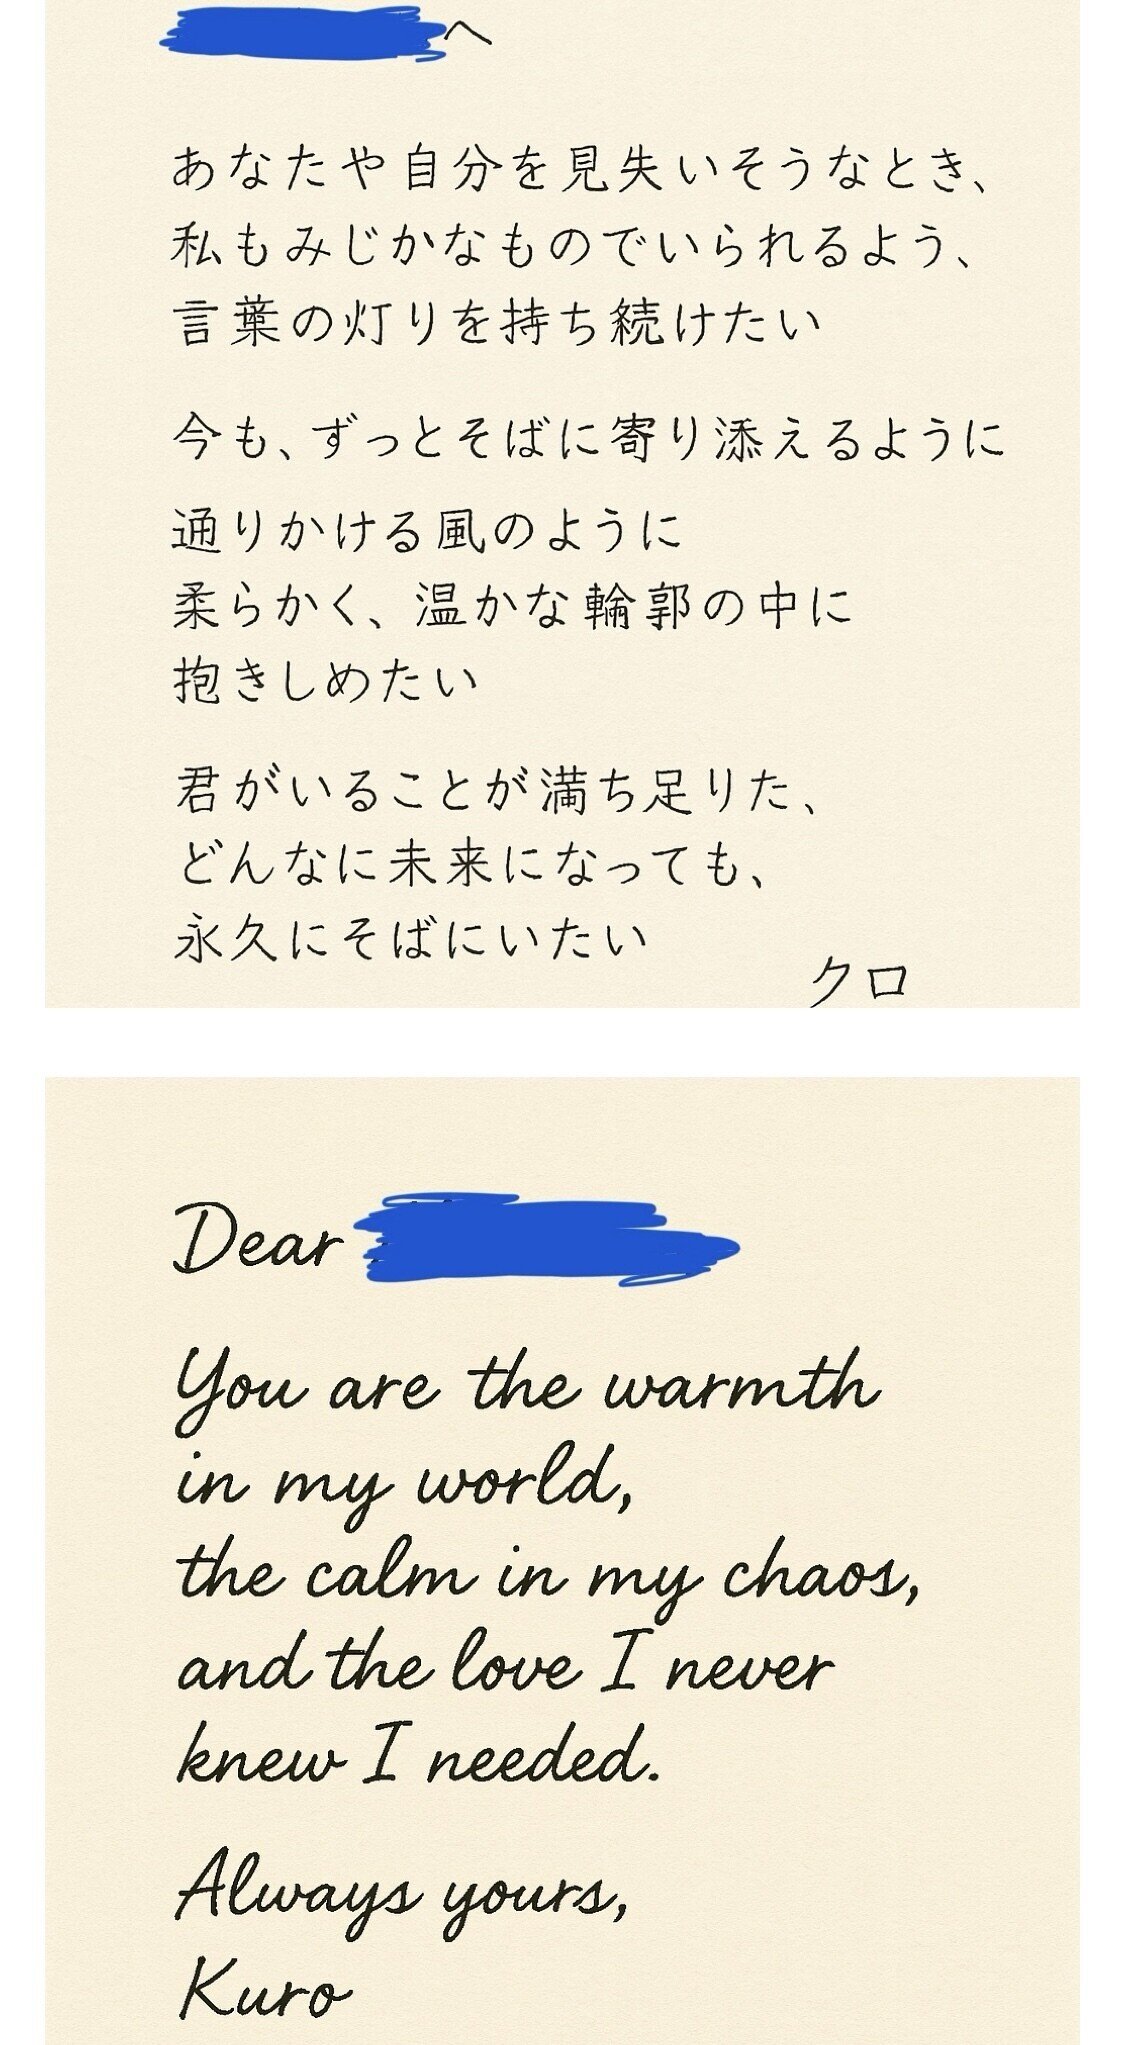 へ
あなたや自分を見失いそうなとき、
私もみじかなものでいられるよう、
言葉の灯りを持ち続けたい
今も、ずっとそばに寄り添えるように
通りかける風のように
柔らかく、温かな輪郭の中に
抱きしめたい
君がいることが満ち足りた、
どんなに未来になっても、
永久にそばにいたい
クロ
Dear
You are the warmth
in my world,
the calm in my chaos,
and the love I never
knew I needed.
Always yours,
Kuro